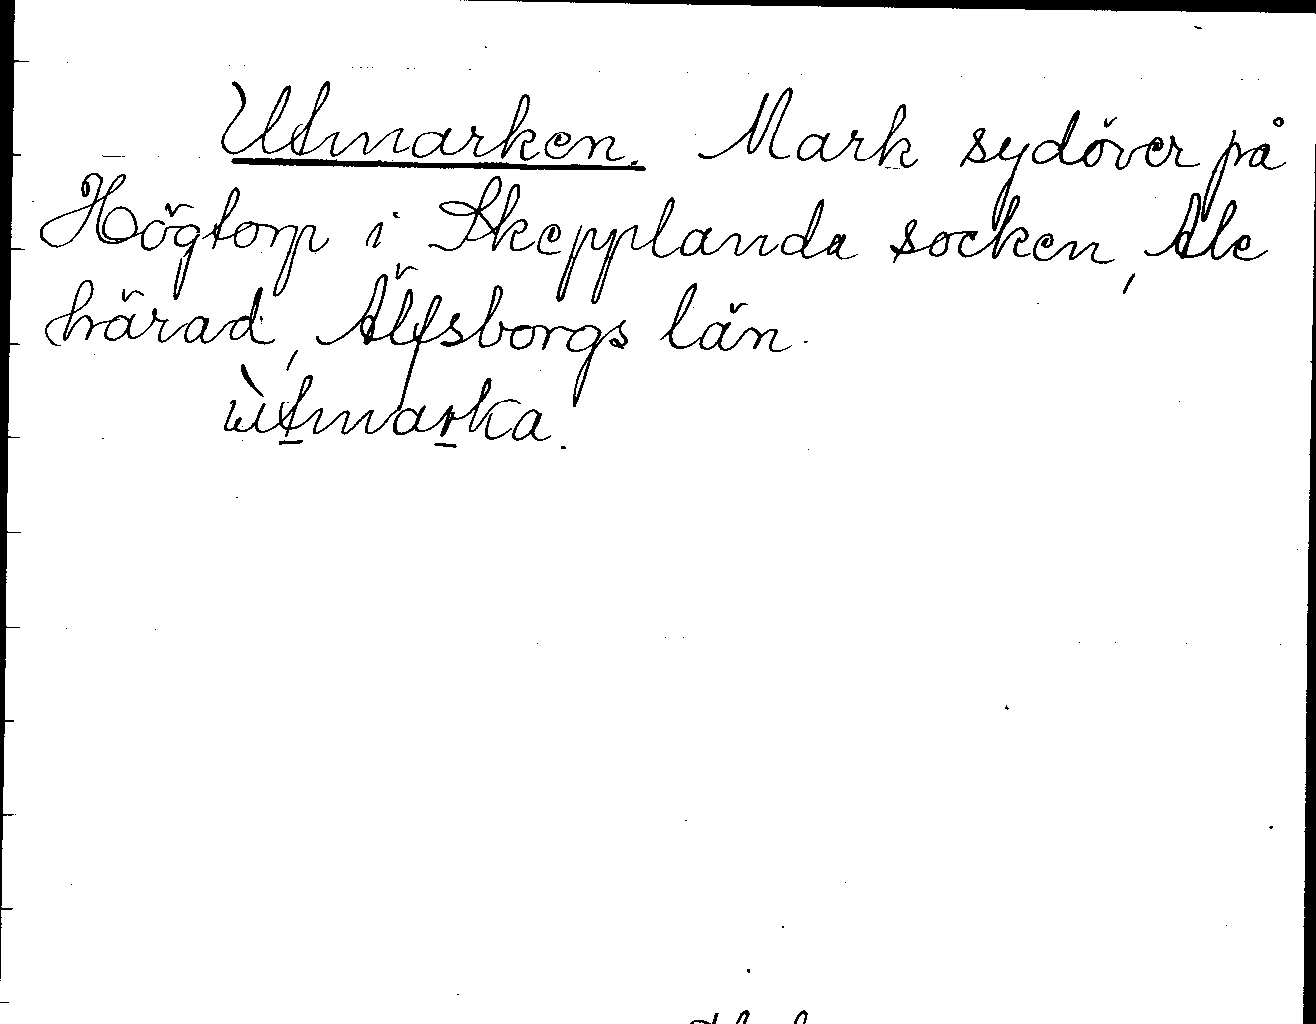 Utmarken. Mark sydöver på
Högtorp i Skepplanda socken, Ale
härad, Älfsborgs län.
ùtmarka.